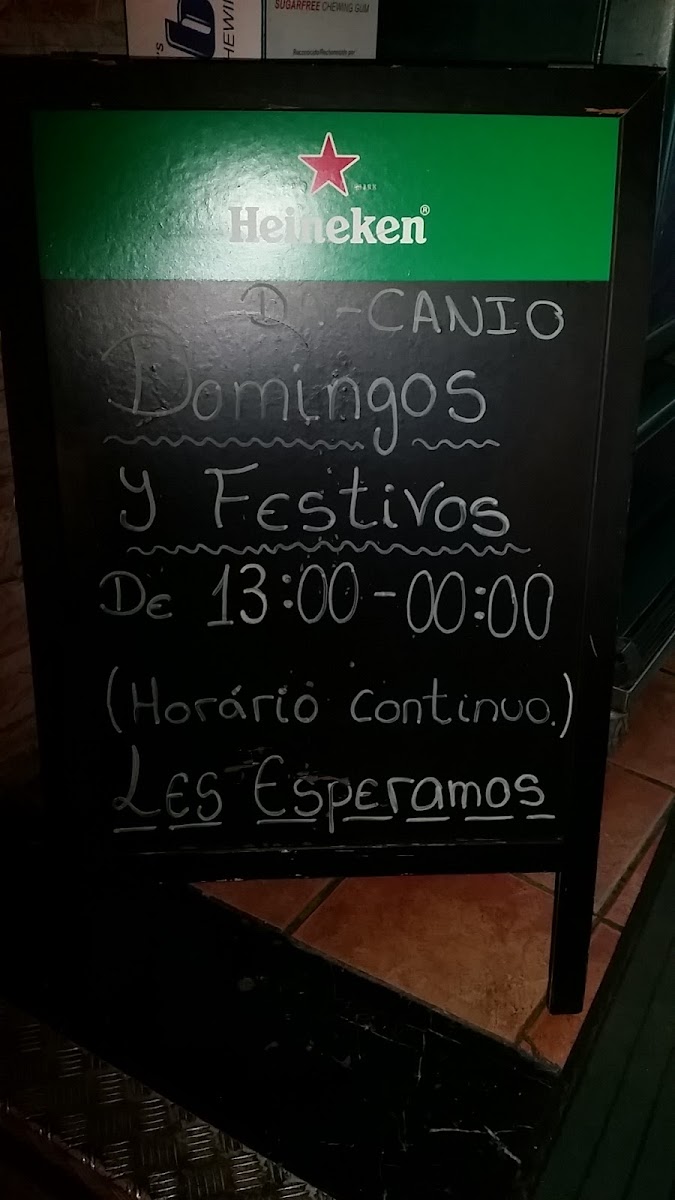 SUGARFREE CHEWING GUM
Heineken®
D -CANIO
Domingos
y Festivos
De 13:00-00:00
(Horário continuo.)
Les Esperamos